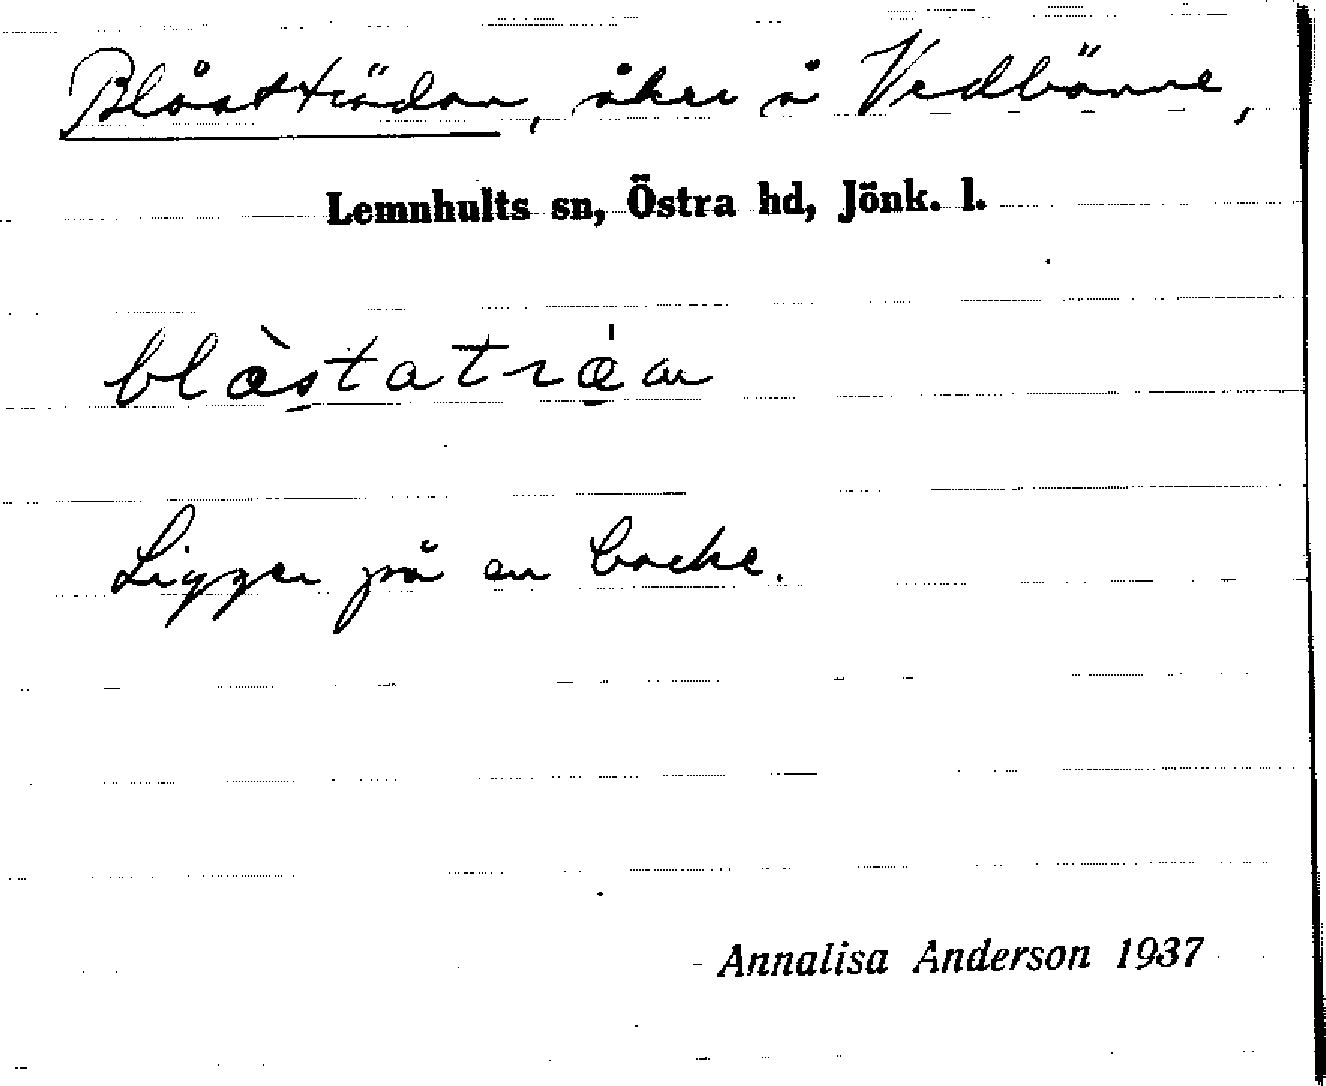 Blåstträdan, åker å Vedbänne,
Lemnhults sn, Östra hd, Jönk. l.
Ligger på en backe.
Annalisa Anderson 1937